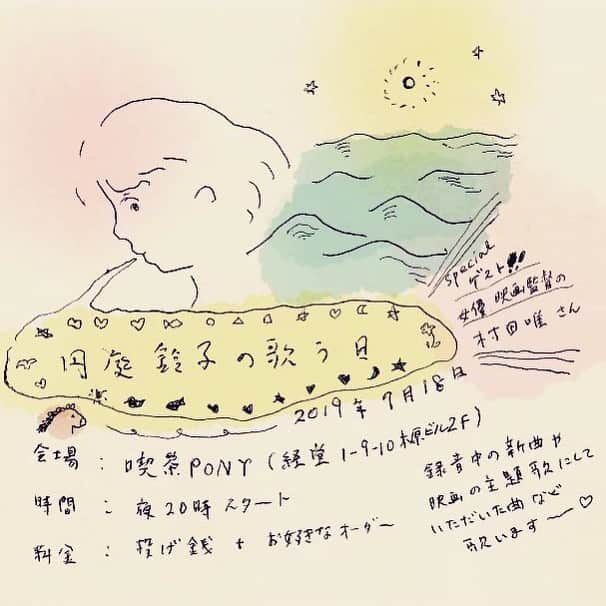 special
ゲスト!!
女優 映画監督の
村田唯さん
円庭鈴子の歌う日
2019年7月18日
会場 : 喫茶PONY (経堂1-9-10 木原ビル2F)
時間 : 夜20時スタート
料金 : 投げ銭 + お好きなオーダー
録音中の新曲や
映画の主題歌にして
いただいた曲など
歌います〜♡